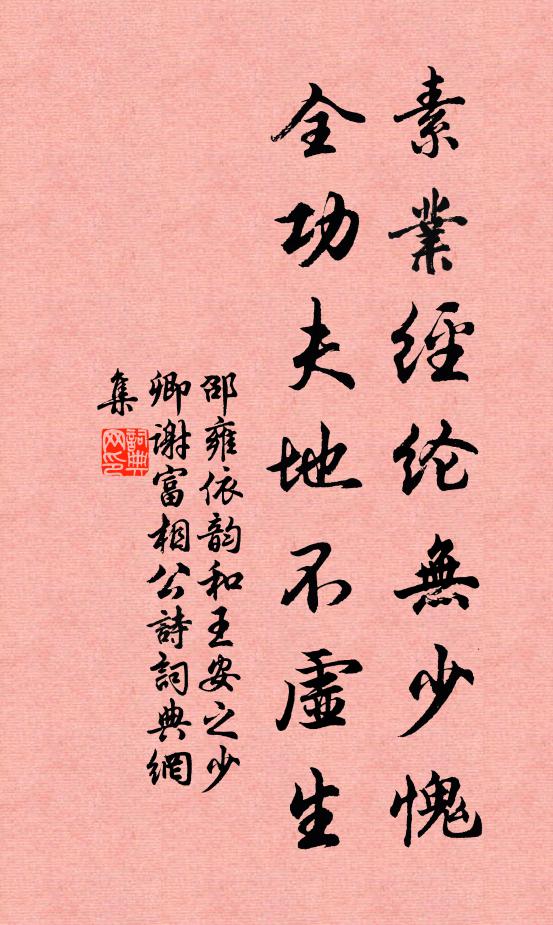 素業經纶無少愧
全功夫地不虛生
邵雍依韵和王安之少
卿谢富相公詩詞典網
集
詞典網印